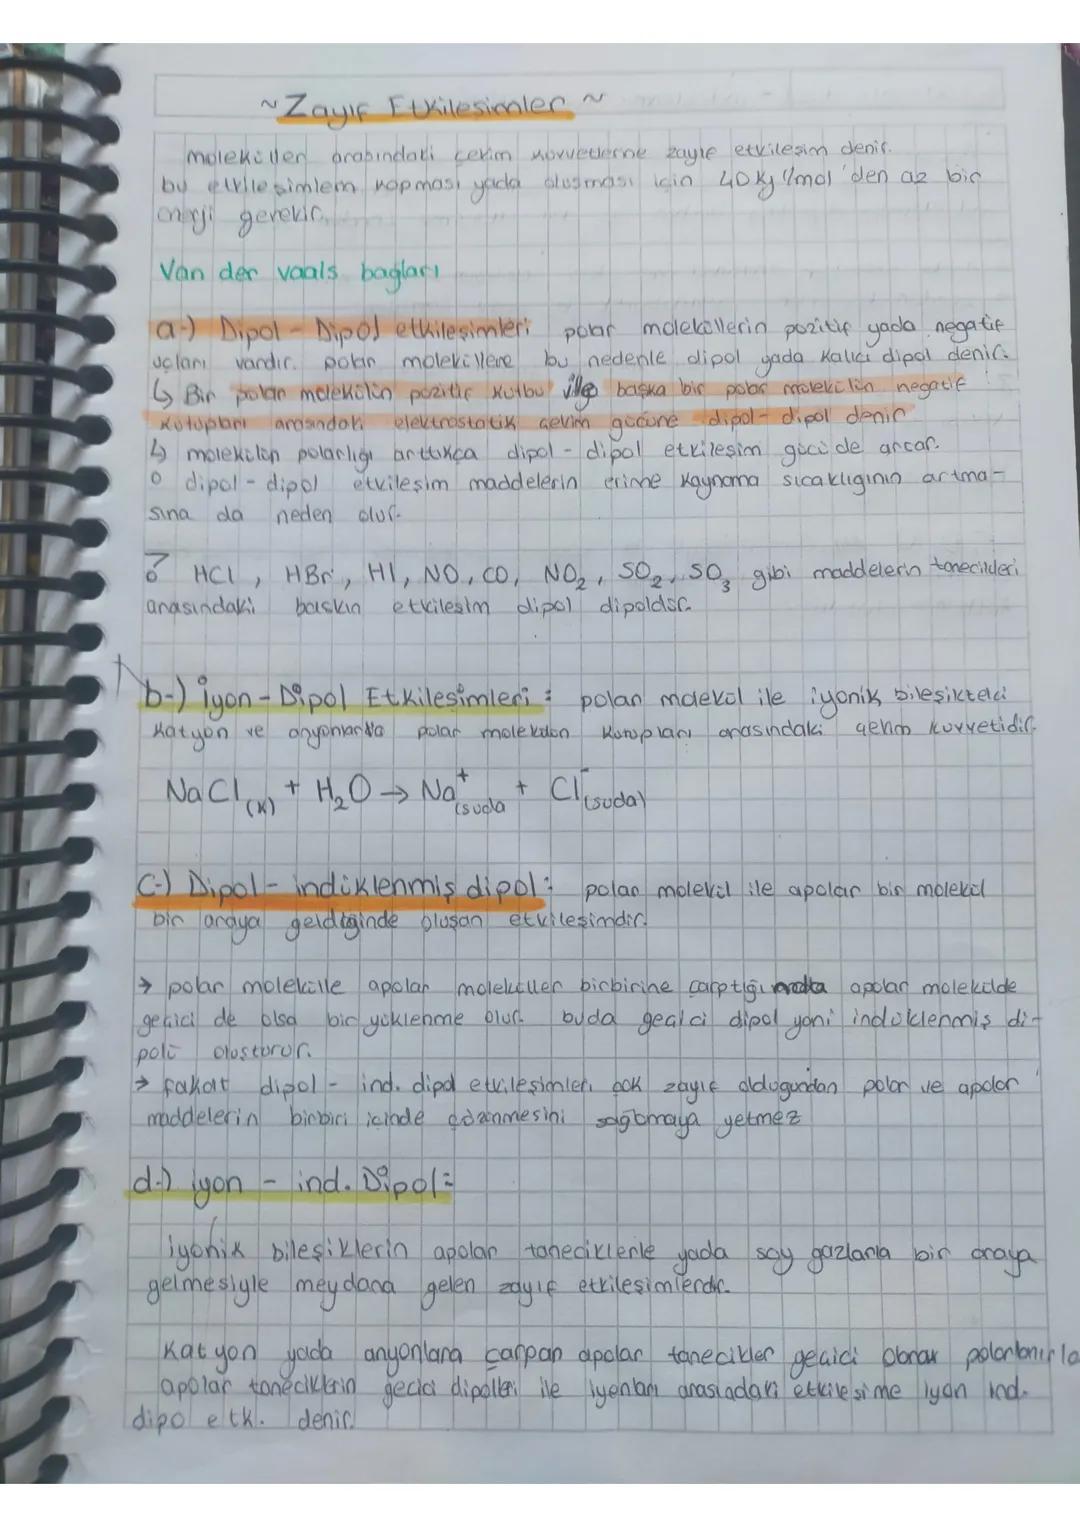 ~ Zayıf Etkileşimler ~
moleküller arasındaki çekim kuvvetlerine zayıf etkileşim denir.
bu etkileşimlerin kopması yada oluşması için 40 kj/mol'den az bir
enerji gerekir.
Van der vaals bağları
a-) Dipol - Dipol etkileşimleri polar moleküllerin pozitif yada negatif
uçları vardır. polar moleküllere bu nedenle dipol yada kalıcı dipol denir.
↳ Bir polar molekülün pozitif kutbu ile başka bir polar molekülün negatif
kutupları arasındaki elektrostatik çekim gücüne dipol - dipol denir
↳ molekülün polarlığı arttıkça dipol - dipol etkileşim gücü de artar.
o dipol - dipol etkileşim maddelerin erime kaynama sıcaklığının artma-
sına da neden olur.
HCl, HBr, HI, NO, CO, NO₂, SO₂, SO₃ gibi maddelerin tanecikleri
arasındaki baskın etkileşim dipol dipoldür.
b-) İyon - Dipol Etkileşimleri : polar molekül ile iyonik bileşikteki
katyon ve anyonlarla polar molekülün kutupları arasındaki çekim kuvvetidir.
NaCl(k) + H₂O → Na⁺(suda + Cl⁻(suda)
C-) Dipol - indüklenmiş dipol : polar molekül ile apolar bir molekül
bir araya geldiğinde oluşan etkileşimdir.
→ polar molekülle apolar moleküller birbirine çarptığı apolar molekülde
geçici de olsa bir yüklenme olur. buda geçici dipol yani indüklenmiş di-
polü oluşturur.
→ fakat dipol - ind. dipol etkileşimleri çok zayıf olduğundan polar ve apolar
maddelerin birbiri içinde çözünmesini sağlamaya yetmez
d-) iyon - ind. Dipol :
iyonik bileşiklerin apolar taneciklerle yada soy gazlarla bir araya
gelmesiyle meydana gelen zayıf etkileşimlerdir.
Katyon yada anyonlara çarpan apolar tanecikler geçici olarak polarlanırla
apolar taneciklerin geçici dipolleri ile iyonların arasındaki etkileşime iyon ind.
dipol etk. denir.